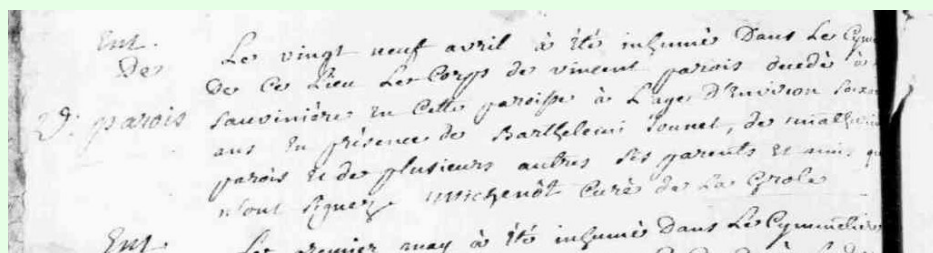 Ent.
De
V: parois
Le vingt neuf avril à été inhumé Dans Le Cyme
de Ce Lieu Le Corps de vincent parois decedé à
Sauvinière En Cette paroisse à L'age D'Environ Soixan
ans En présence de Barthelemi Jounet, de mathurin
parois Et de plusieurs autres Ses parents Et amis qu
n'ont Signez Michenôt Curé de La Grole
Ent.
Le premier may à été inhumé Dans Le Cymmetiere